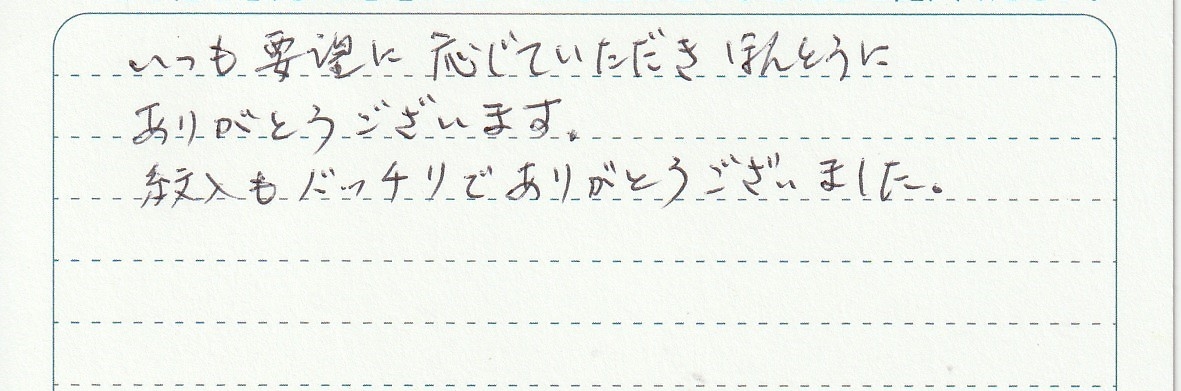 いつも要望に応じていただきほんとうに
ありがとうございます。
紋入もバッチリでありがとうございました。